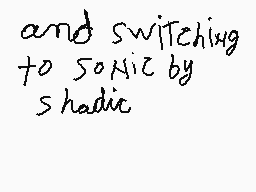 and switching
to sonic by
shadic